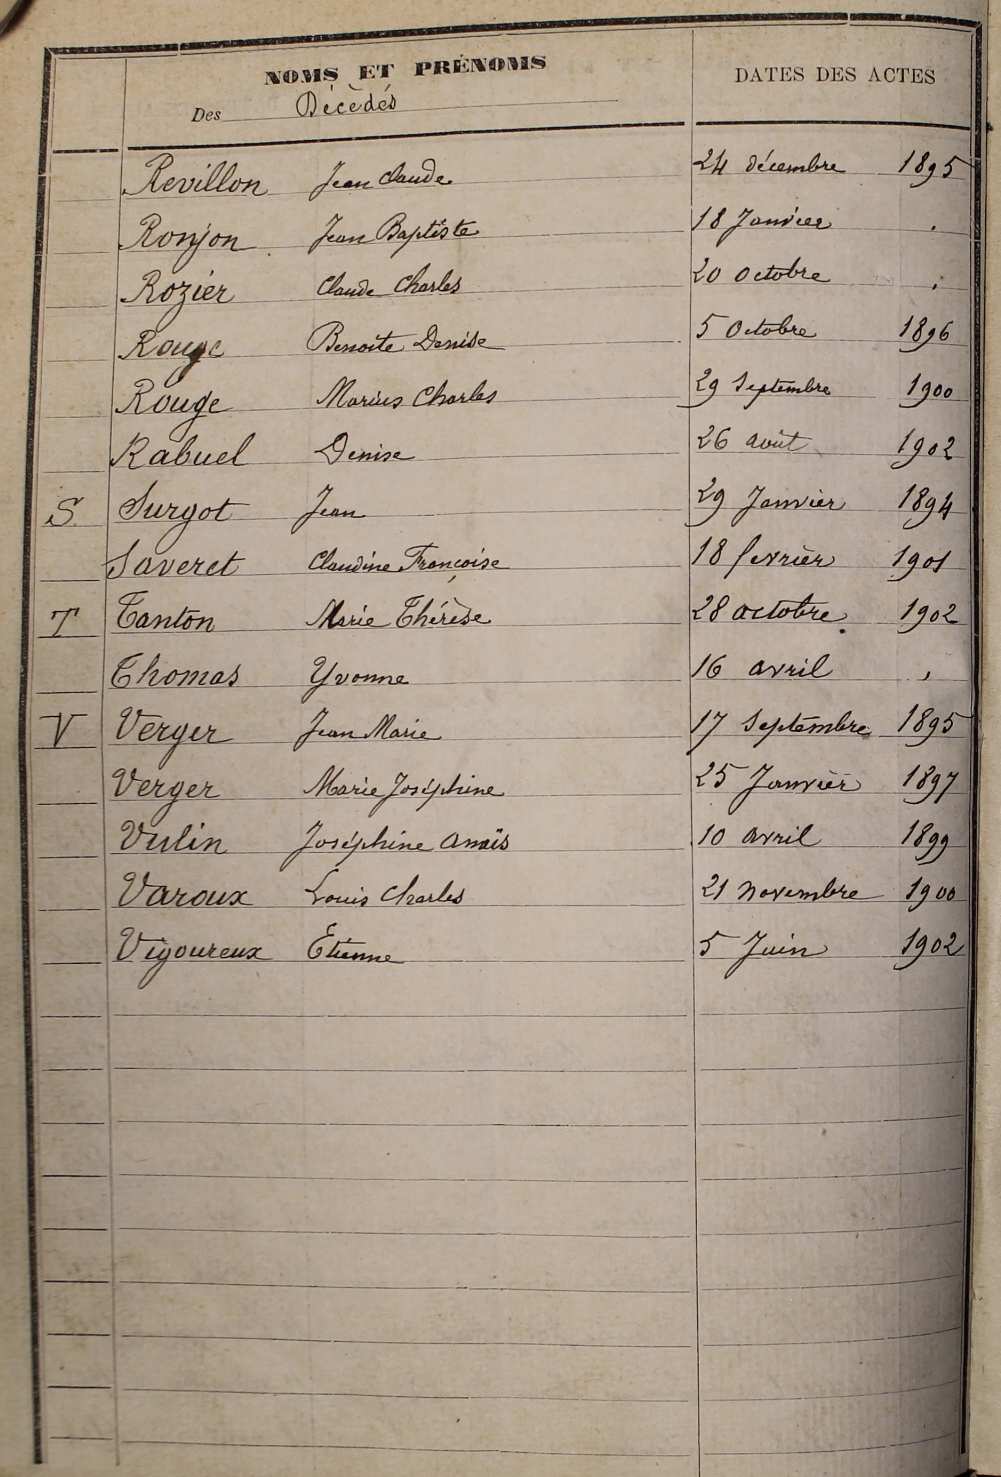 NOMS ET PRÉNOMS DATES DES ACTES
Des Décèdés
Revillon Jean Claude 24 décembre 1895
Ronjon Jean Baptiste 18 Janvier "
Rozier Claude Charles 20 Octobre "
Rouge Benoite Denise 5 Octobre 1896
Rouge Marius Charles 29 Septembre 1900
Rabuel Denise 26 août 1902
S Surgot Jean 29 Janvier 1894
Saveret Claudine Françoise 18 fevrier 1901
T Tanton Marie Thérèse 28 octobre 1902
Thomas Yvonne 16 avril "
V Verger Jean Marie 17 Septembre 1895
Verger Marie Joséphine 25 Janvier 1897
Vulin Joséphine Anaïs 10 avril 1899
Varoux Louis Charles 21 novembre 1900
Vigoureux Etienne 5 Juin 1902